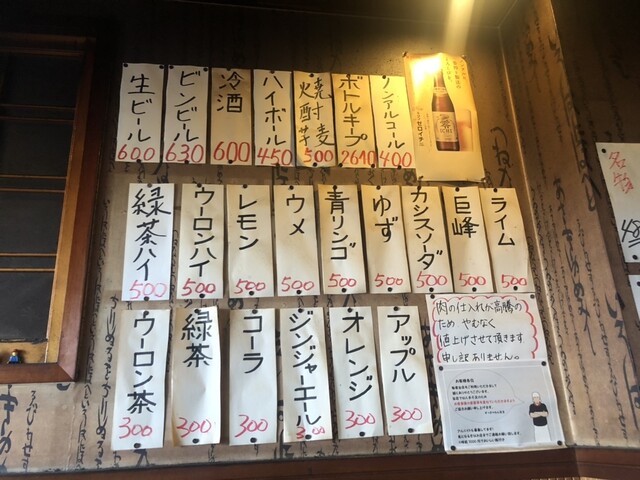 生ビール 600
ビンビール 630
冷酒 600
ハイボール 450
焼酎 麦 芋 500
ボトルキープ 2610
ノンアルコール 400
緑茶ハイ 500
ウーロンハイ 500
レモン 500
ウメ 500
青リンゴ 500
ゆず 500
カシスソーダ 500
巨峰 500
ライム 500
ウーロン茶 300
緑茶 300
コーラ 300
ジンジャーエール 300
オレンジ 300
アップル 300
肉の仕入れが高騰の
ため やむなく
値上げさせて頂きます
申し訳ありません。
お客様各位
名物